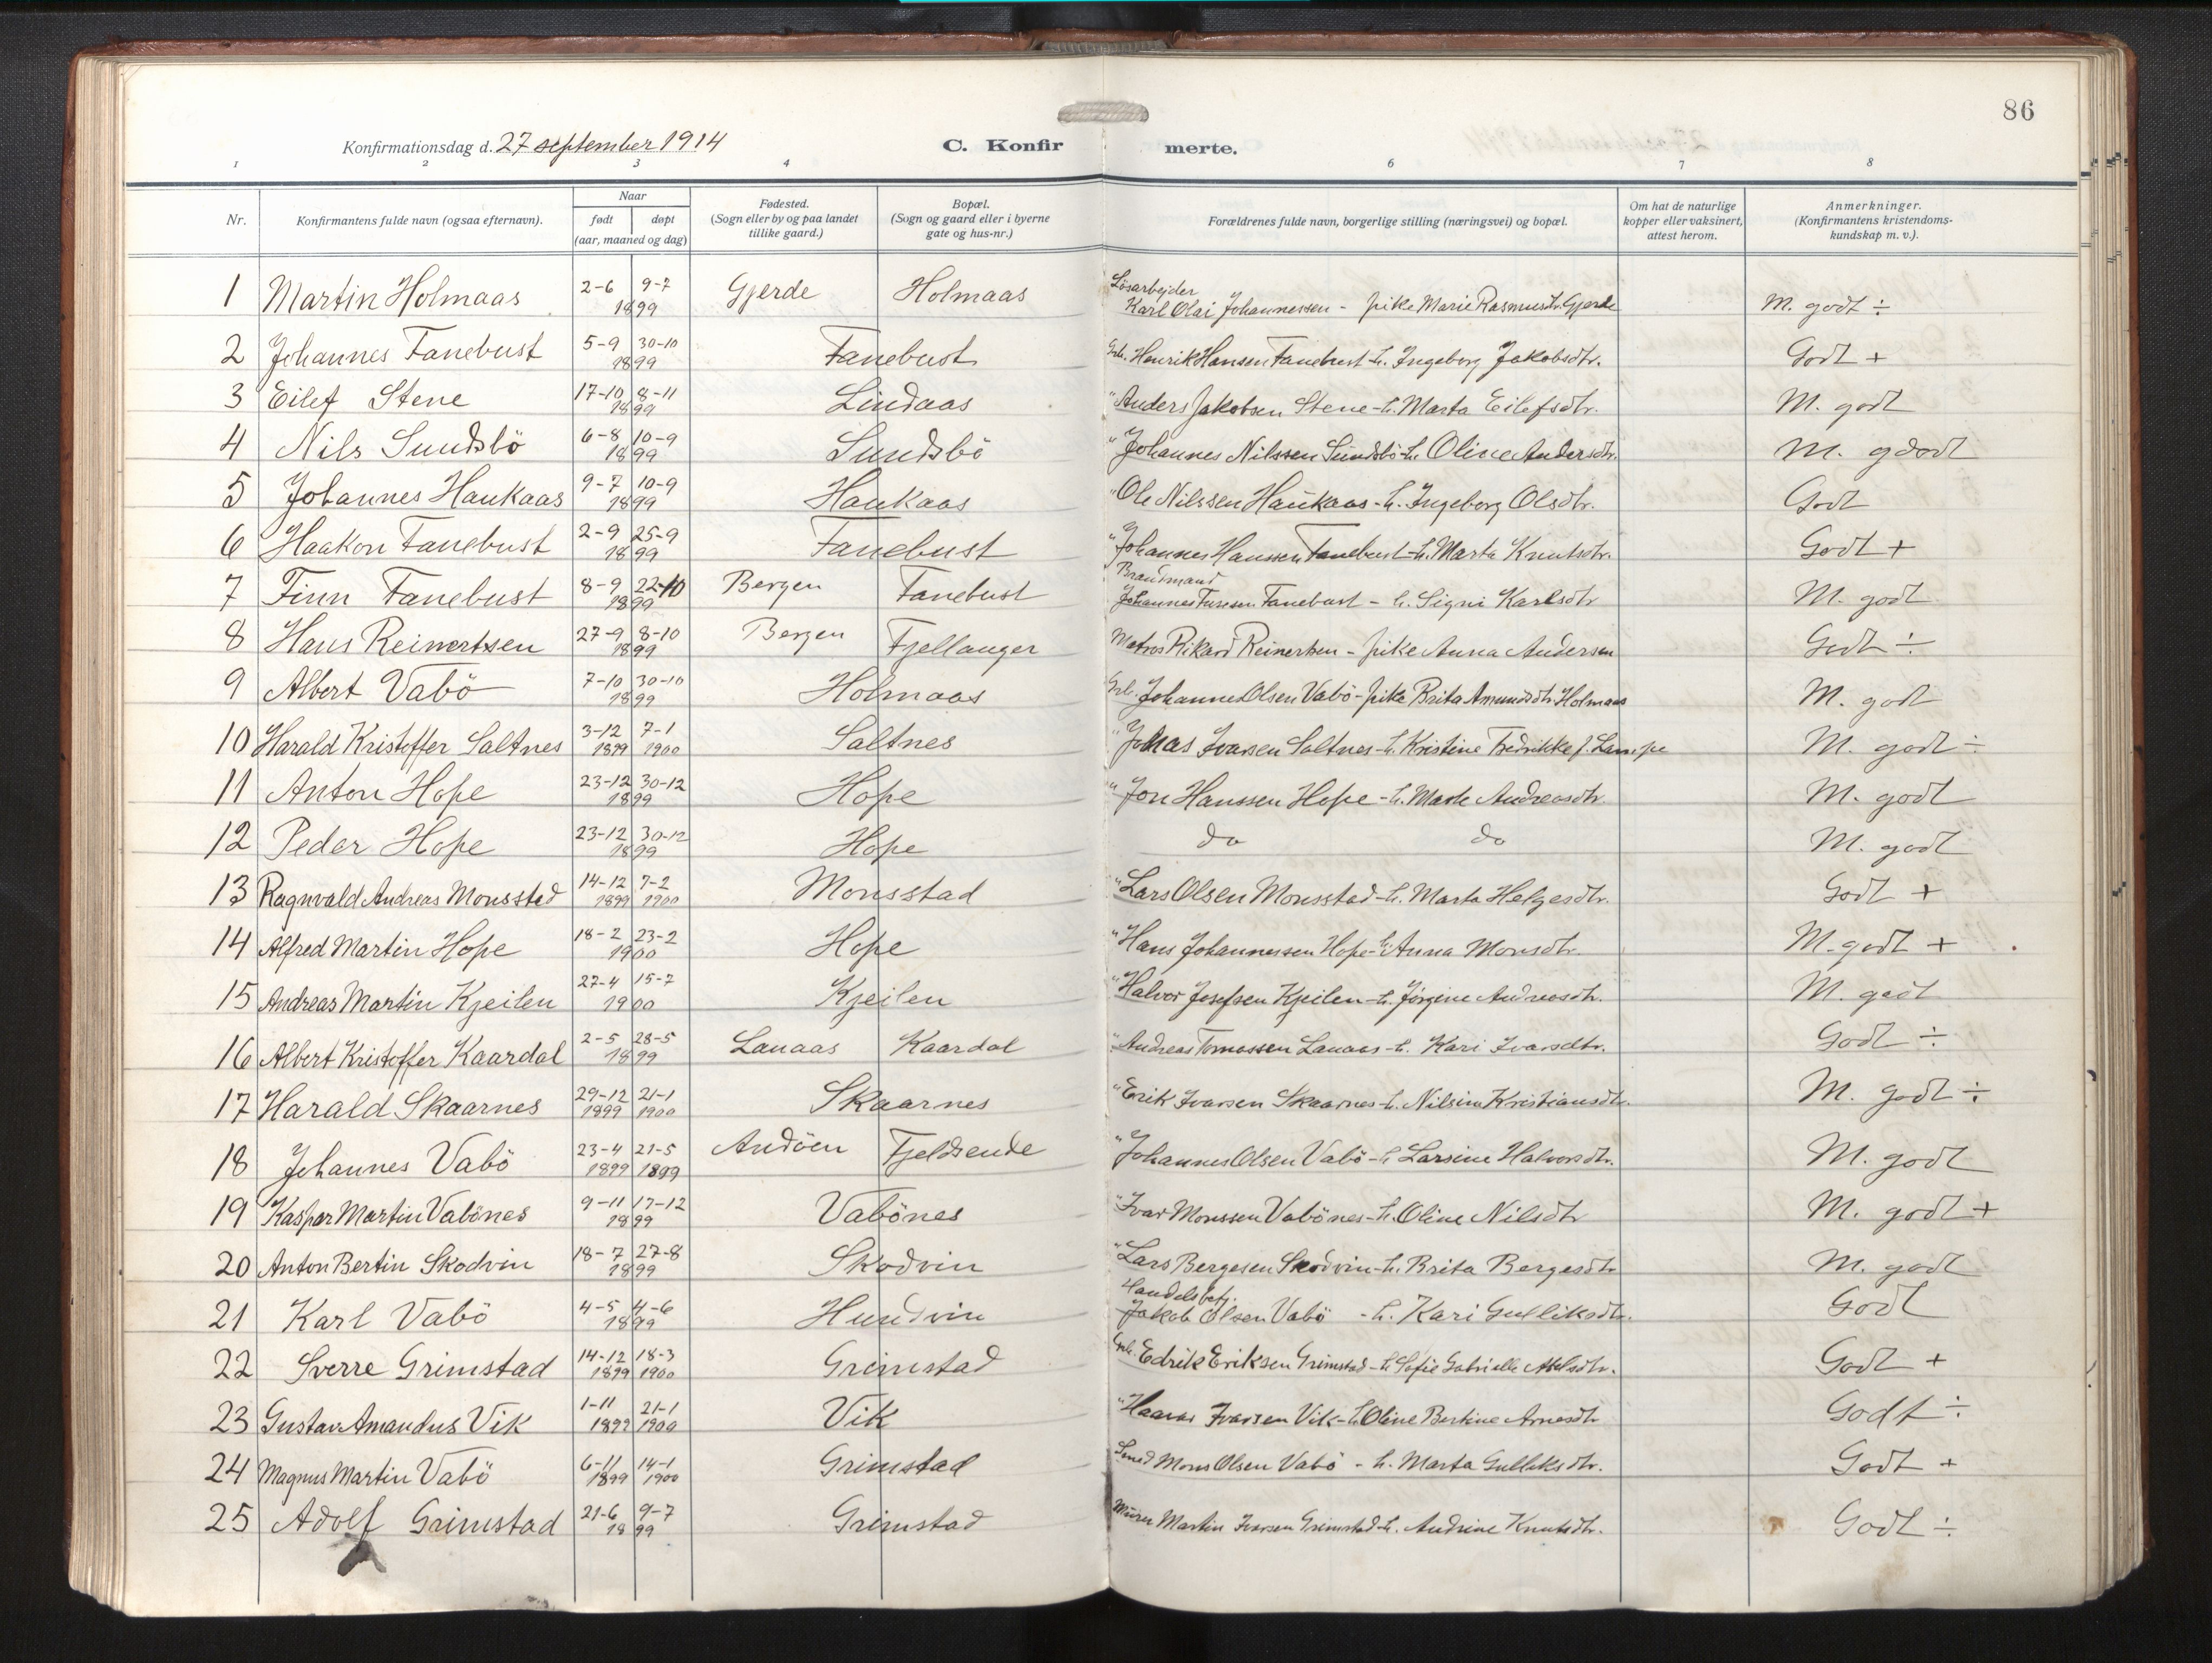 86
Konfirmationsdag d. 27 september 1914 C. Konfir merte.
1 2 3 4 6 7 8
Nr. Konfirmantens fulde navn (ogsaa efternavn). Naar født døpt (aar, maaned og dag) Fødested. (Sogn eller by og paa landet tillike gaard.) Bopæl. (Sogn og gaard eller i byerne gate og hus-nr.) Forældrenes fulde navn, borgerlige stilling (næringsvei) og bopæl. Om hat de naturlige kopper eller vaksinert, attest herom. Anmerkninger. (Konfirmantens kristendoms-kundskap m. v.).
1 Martin Holmaas 2-6 9-7 1899 Gjerde Holmaas Løsarbejder Karl Olai Johannessen - pike Marie Rasmusdtr. Gjerde M. godt ÷
2 Johannes Fanebust 5-9 30-10 1899 Fanebust Grb. Henrik Hansen Fanebust - h. Ingeborg Jakobsdtr. Godt +
3 Eilef Stene 17-10 8-11 1899 Lindaas " Anders Jakobsen Stene - h. Marta Eilefsdtr. M. godt
4 Nils Sundsbö 6-8 10-9 1899 Sundsbö " Johannes Nilssen Sundsbö - h. Oline Andersdtr. M. gdodt
5 Johannes Haukaas 9-7 10-9 1899 Haukaas " Ole Nilssen Haukaas - h. Ingeborg Olsdtr. Godt
6 Haakon Fanebust 2-9 25-9 1899 Fanebust " Johannes Hanssen Fanebust - h. Marta Knutsdtr. Godt +
7 Finn Fanebust 8-9 22-10 1899 Bergen Fanebust Brandmand Johannes Fanebust - h. Signi Karlsdtr M. godt
8 Hans Reinertsen 27-9 8-10 1899 Bergen Fjellanger Matros Rikard Reinertsen - pike Anna Andersen Godt ÷
9 Albert Vabö 7-10 30-10 1899 Holmaas Grb. Johannes Olsen Vabö - pike Brita Amundsdtr. Holmaas M. godt
10 Harald Kristoffer Saltnes 3-12 1899 7-1 1900 Saltnes " Johas Ivarsen Saltnes - h. Kristine Fredrikke J. Lampe M. godt ÷
11 Anton Hope 23-12 30-12 1899 Hope " Jon Hanssen Hope - h. Marte Andreasdtr. M. godt
12 Peder Hope 23-12 30-12 1899 Hope do do M. godt
13 Ragnvald Andreas Monsstad 14-12 1899 7-2 1900 Monsstad " Lars Olsen Monsstad - h. Marta Helgesdtr. Godt +
14 Alfred Martin Hope 18-2 23-2 1900 Hope " Hans Johannessen Hope - h. Anna Monsdtr. M. godt +
15 Andreas Martin Kjeilen 27-4 15-7 1900 Kjeilen " Halvor Josefsen Kjeilen - h. Jörgine Andreasdtr. M. godt
16 Albert Kristoffer Kaardal 2-5 28-5 1899 Lanaas Kaardal " Andreas Tomassen Lanaas - h. Kari Ivarsdtr. Godt ÷
17 Harald Skaarnes 29-12 1899 21-1 1900 Skaarnes " Erik Ivarsen Skaarnes - h. Nilsina Kristiansdtr. M. godt ÷
18 Johannes Vabö 23-4 1899 21-5 1899 Andöen Fjeldsende " Johannes Olsen Vabö - h. Larsine Halvorsdtr. M. godt
19 Kaspar Martin Vabönes 9-11 17-12 1899 Vabönes " Ivar Monssen Vabönes - h. Oline Nilsdtr M. godt +
20 Anton Bertin Skodvin 18-7 27-8 1899 Skodvin " Lars Bergesen Skodvin - h. Brita Bergesdtr M. godt
21 Karl Vabö 4-5 4-6 1899 Hundvin Handelsbetj. Jakob Olsen Vabö - h. Kari Gulliksdtr. Godt
22 Sverre Grimstad 14-12 1899 18-3 1900 Grimstad Grb. Edrik Eriksen Grimstad - h. Sofie Gabrielle Akselsdtr. Godt +
23 Gustav Amandus Vik 1-11 1899 21-1 1900 Vik " Ivarsen Vik - h. Oline Bertine Arnesdtr Godt ÷
24 Magnus Martin Vabö 6-11 1899 14-1 1900 Grimstad Smed Mons Olsen Vabö - h. Marta Gulliksdtr. Godt +
25 Adolf Grimstad 21-6 9-7 1899 Grimstad Murer Martin Ivarsen Grimstad - h. Andrine Knutsdtr. Godt ÷